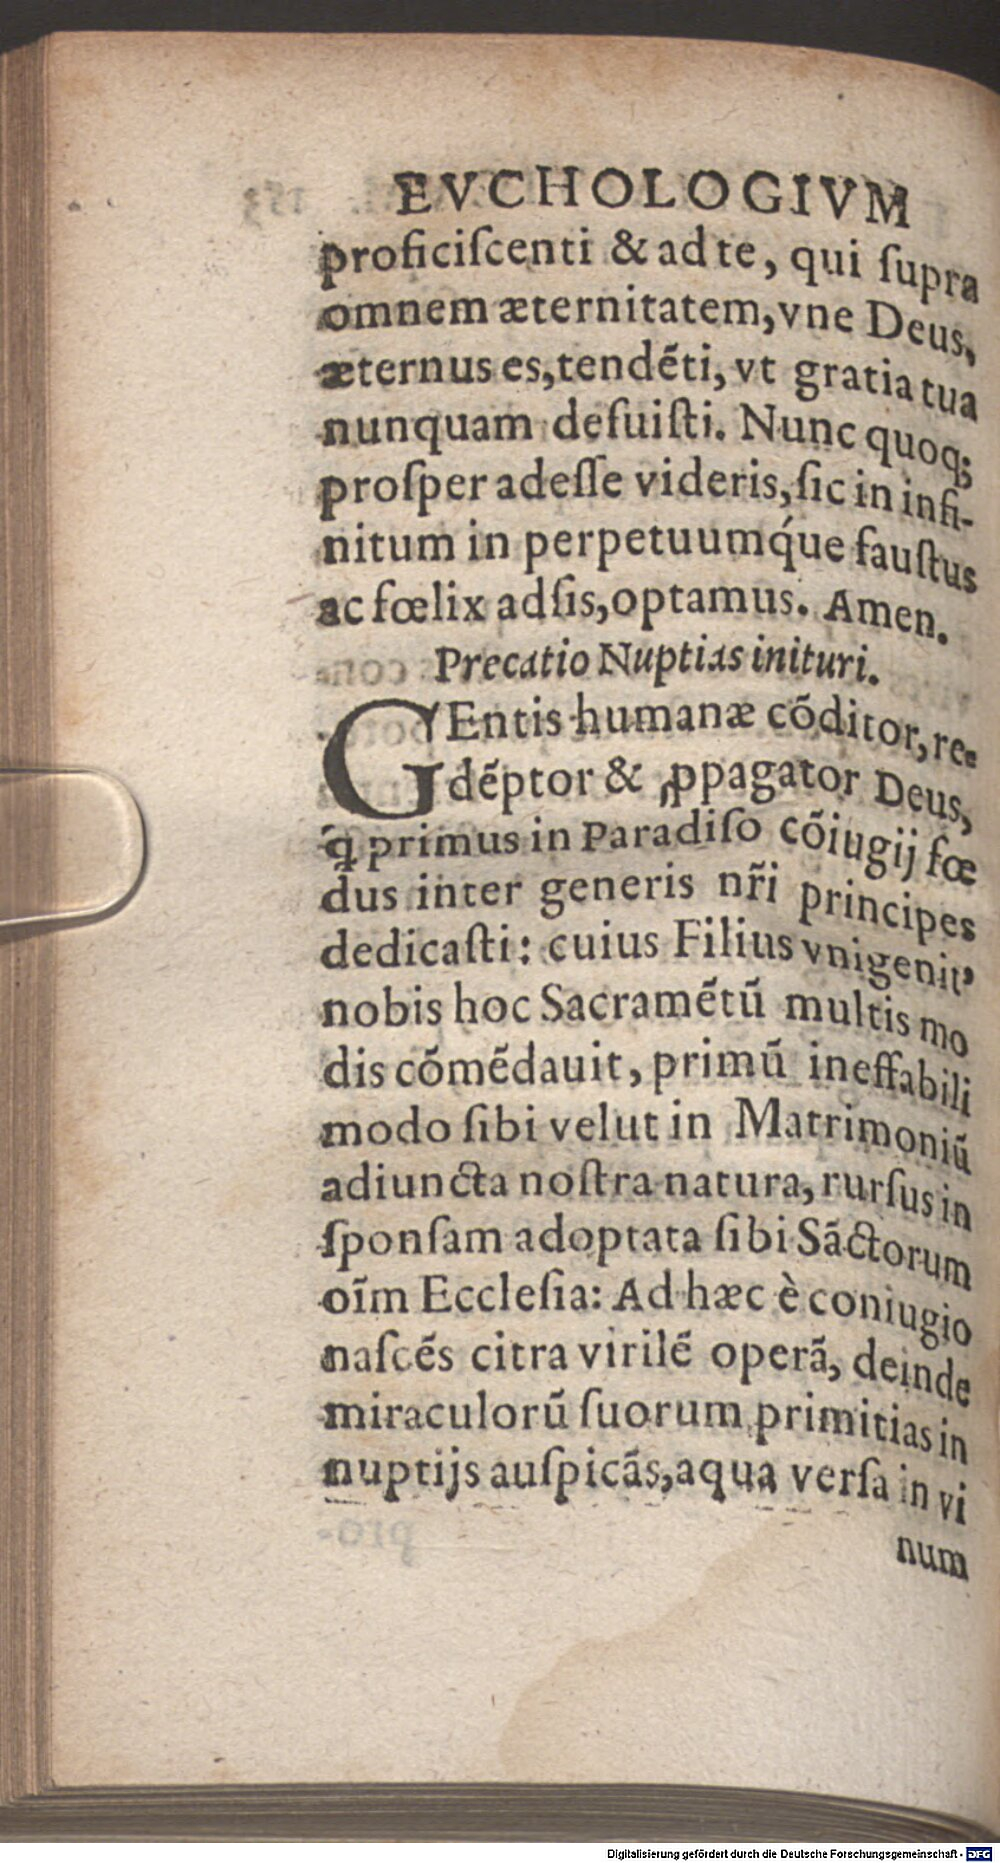 EVCHOLOGIVM
proficiſcenti & ad te, qui ſupra
omnem æternitatem, vne Deus,
æternus es, tendẽti, vt gratia tua
nunquam defuiſti. Nunc quoq;
proſper adeſſe videris, ſic in infi-
nitum in perpetuumq́ue fauſtus
ac fœlix adſis, optamus. Amen.
Precatio Nuptias inituri.
GEntis humanæ cõditor, re-
dẽptor & ꝓpagator Deus,
q̃ primus in Paradiſo cõiugij fœ
dus inter generis nr̃i principes
dedicaſti: cuius Filius vnigenitꝰ
nobis hoc Sacramẽtũ multis mo
dis cõmẽdauit, primũ ineffabili
modo ſibi velut in Matrimoniũ
adiuncta noſtra natura, rurſus in
ſponſam adoptata ſibi Sãctorum
oĩm Eccleſia: Ad hæc è coniugio
naſcẽs citra virilẽ operã, deinde
miraculorũ ſuorum primitias in
nuptijs auſpicãs, aqua verſa in vi
num
Digitalisierung gefördert durch die Deutsche Forschungsgemeinschaft - DFG